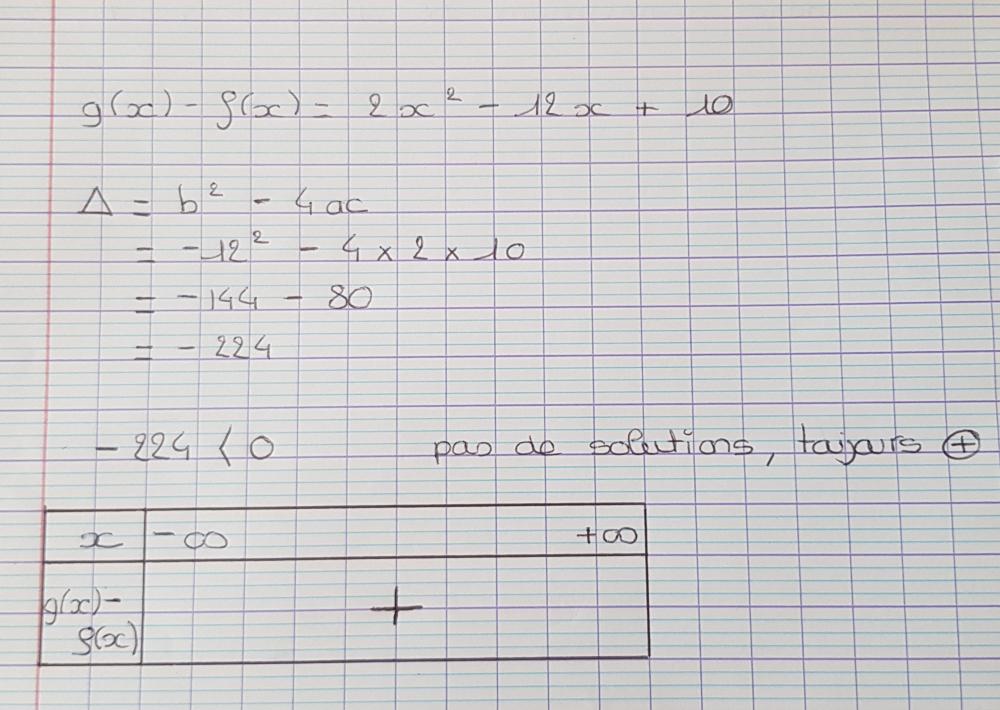 g(x) - f(x) = 2x² - 12x + 10
Δ = b² - 4ac
= -12² - 4 × 2 × 10
= -144 - 80
= -224
-224 < 0 pas de solutions, toujours ⊕
x -∞ +∞
g(x)-
f(x)
+